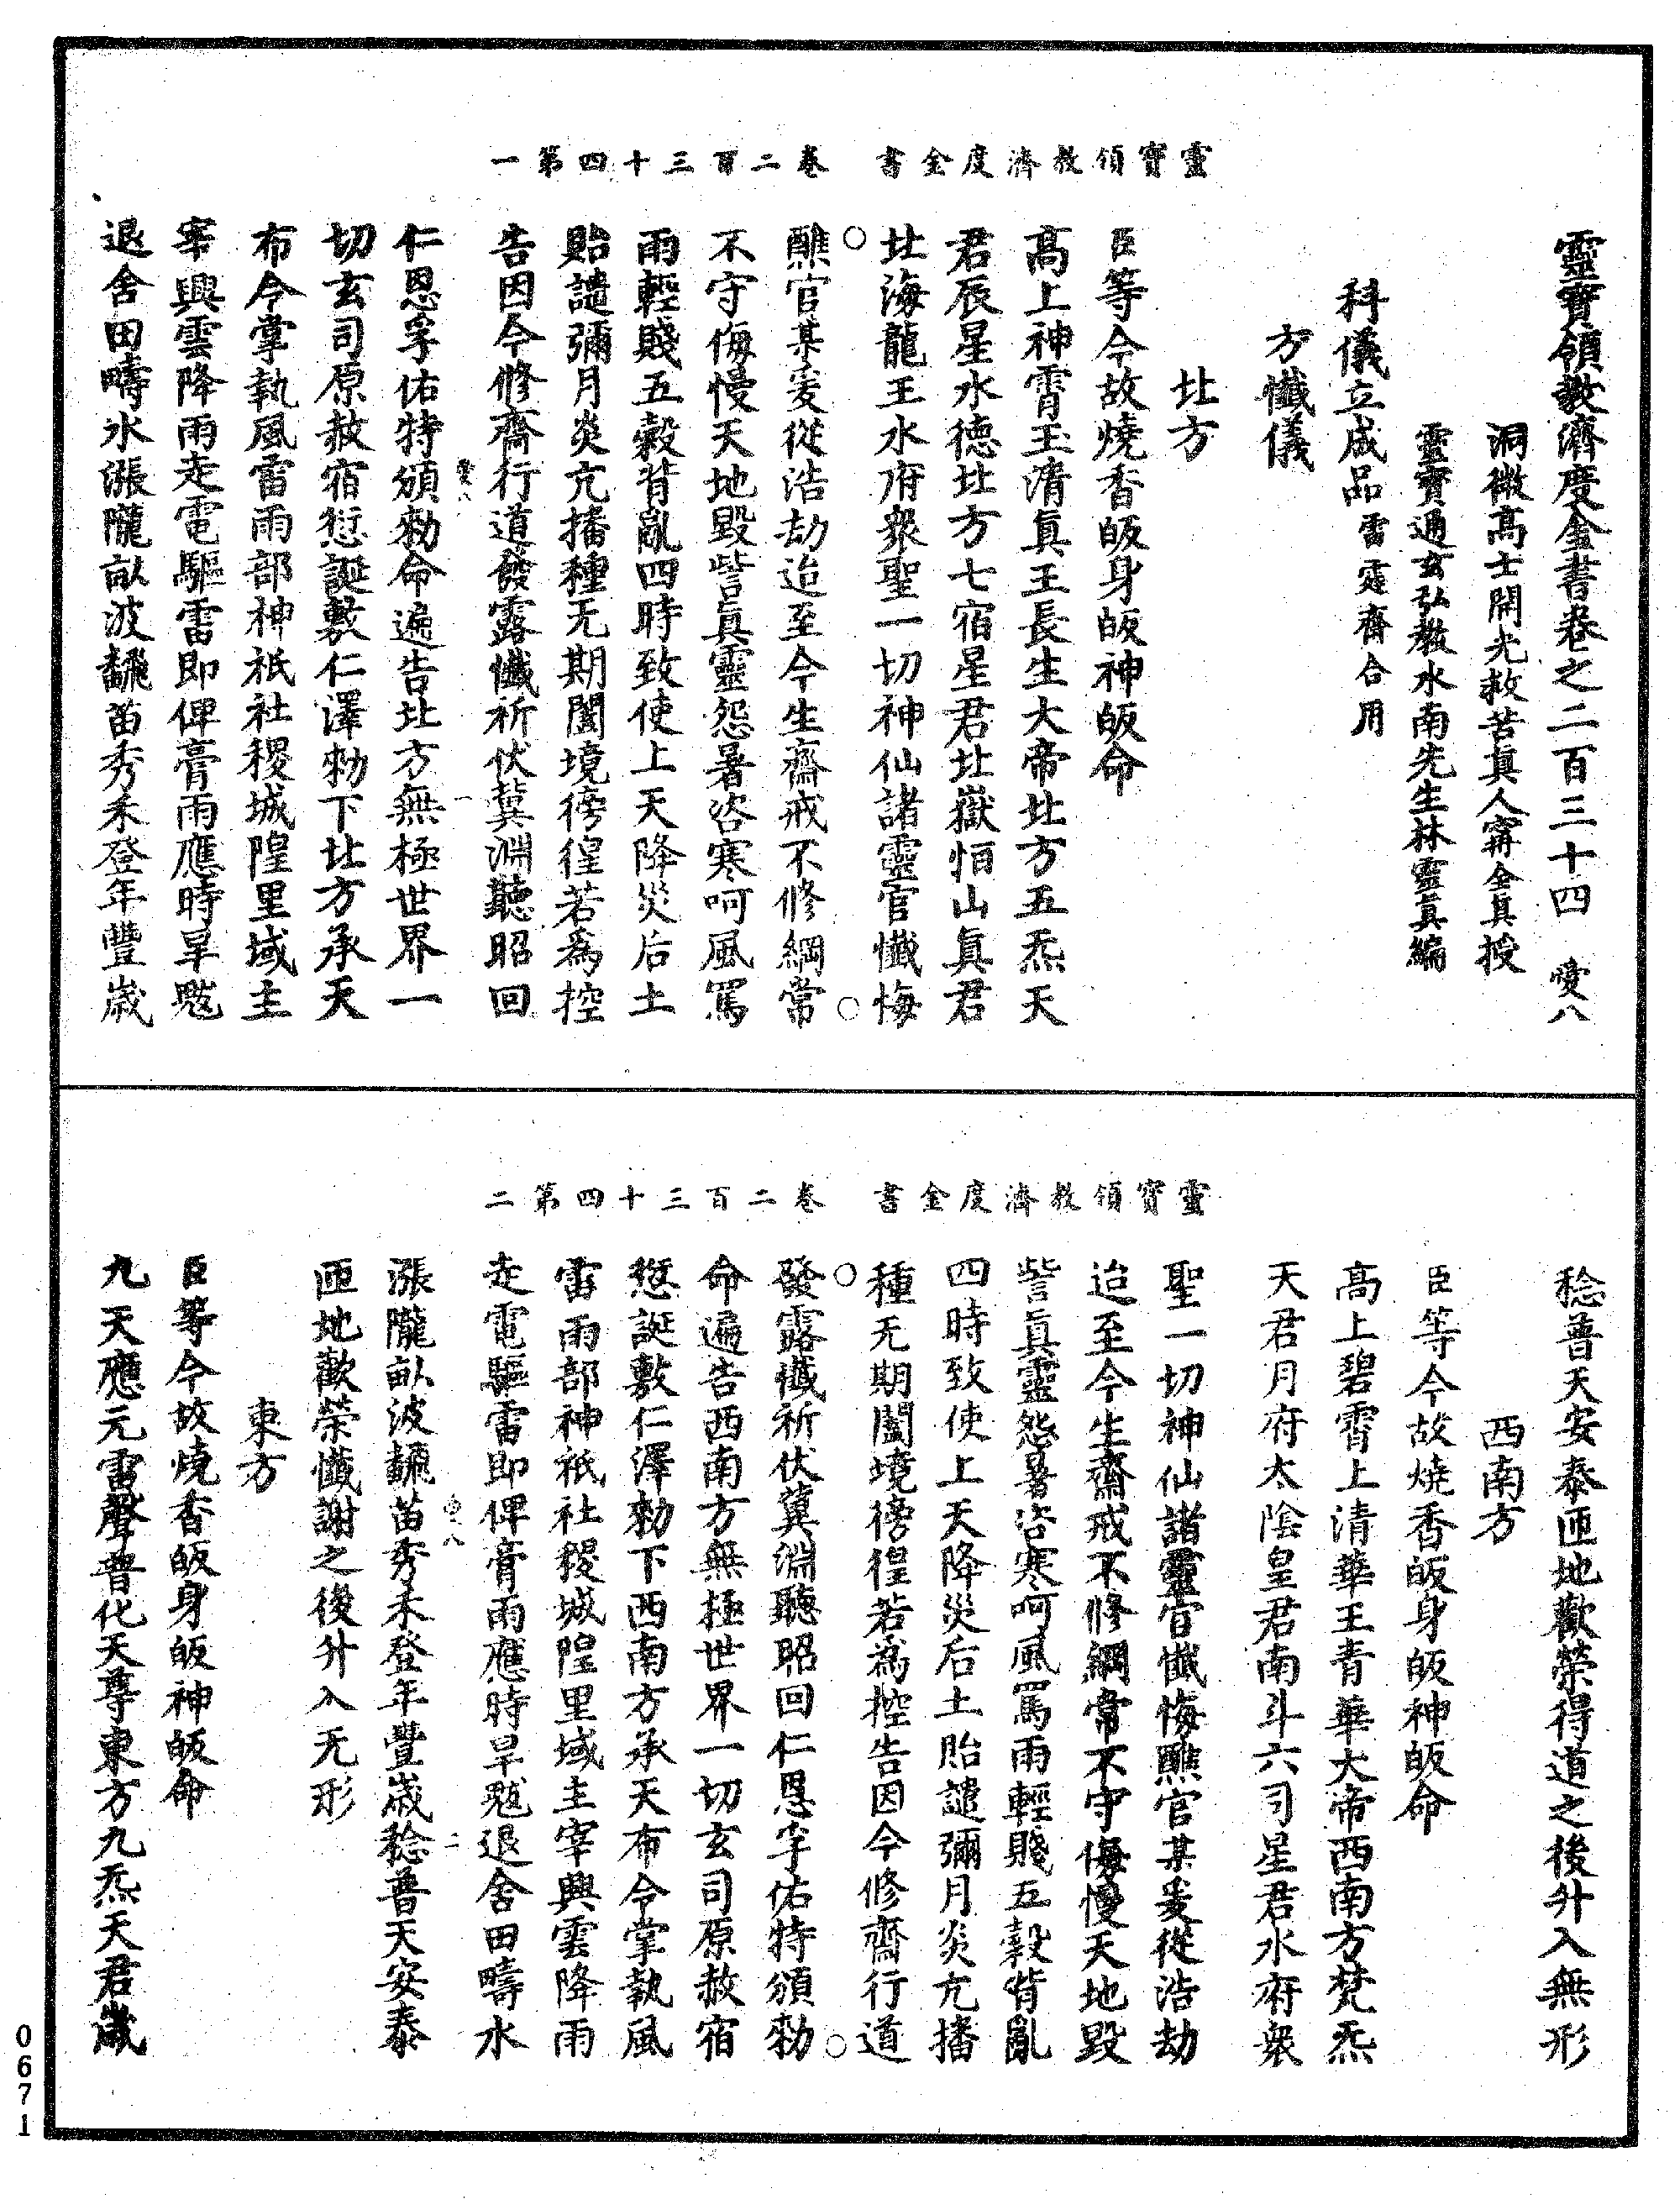 靈寶領教濟度金書　卷二百三十四第一
靈寶領教濟度金書卷之二百三十四　愛八
洞微高士開光救苦真人甯全真授
靈寶通玄弘教水南先生林靈真編
科儀立成品雷霆齋合用
方懺儀
北方
臣等今故燒香皈身皈神皈命
高上神霄玉清真王長生大帝北方五炁天
君辰星水德北方七宿星君北嶽恒山真君
北海龍王水府衆聖一切神仙諸靈官懺悔
醮官某爰從浩劫迨至今生齋戒不修綱常
不守侮慢天地毀訾真靈怨暑咨寒呵風罵
雨輕賤五穀背亂四時致使上天降災后土
貽譴彌月炎亢播種无期闔境徬徨若為控
告因今修齋行道發露懺祈伏冀淵聽昭回
仁恩孚佑特頒勑命遍告北方無極世界一
切玄司原赦宿愆誕敷仁澤勑下北方承天
布令掌執風雷雨部神祇社稷城隍里域主
宰興雲降雨走電驅雷即俾膏雨應時旱魃
退舍田疇水漲隴畝波飜苗秀禾登年豐歲
愛八　一
靈寶領教濟度金書　卷二百三十四第二
稔普天安泰匝地歡榮得道之後升入無形
西南方
臣等今故燒香皈身皈神皈命
高上碧霄上清華王青華大帝西南方梵炁
天君月府太陰皇君南斗六司星君水府衆
聖一切神仙諸靈官懺悔醮官某爰從浩劫
迨至今生齋戒不修綱常不守侮慢天地毀
訾真靈怨暑咨寒呵風罵雨輕賤五穀背亂
四時致使上天降災后土貽譴彌月炎亢播
種无期闔境徬徨若為控告因今修齋行道
發露懺祈伏冀淵聽昭回仁恩孚佑特頒勑
命遍告西南方無極世界一切玄司原赦宿
愆誕敷仁澤勑下西南方承天布令掌執風
雷雨部神祇社稷城隍里域主宰興雲降雨
走電驅雷即俾膏雨應時旱魃退舍田疇水
漲隴畝波飜苗秀禾登年豐歲稔普天安泰
愛八　二
匝地歡榮懺謝之後升入无形
東方
臣等今故燒香皈身皈神皈命
九天應元雷聲普化天尊東方九炁天君歲
0671